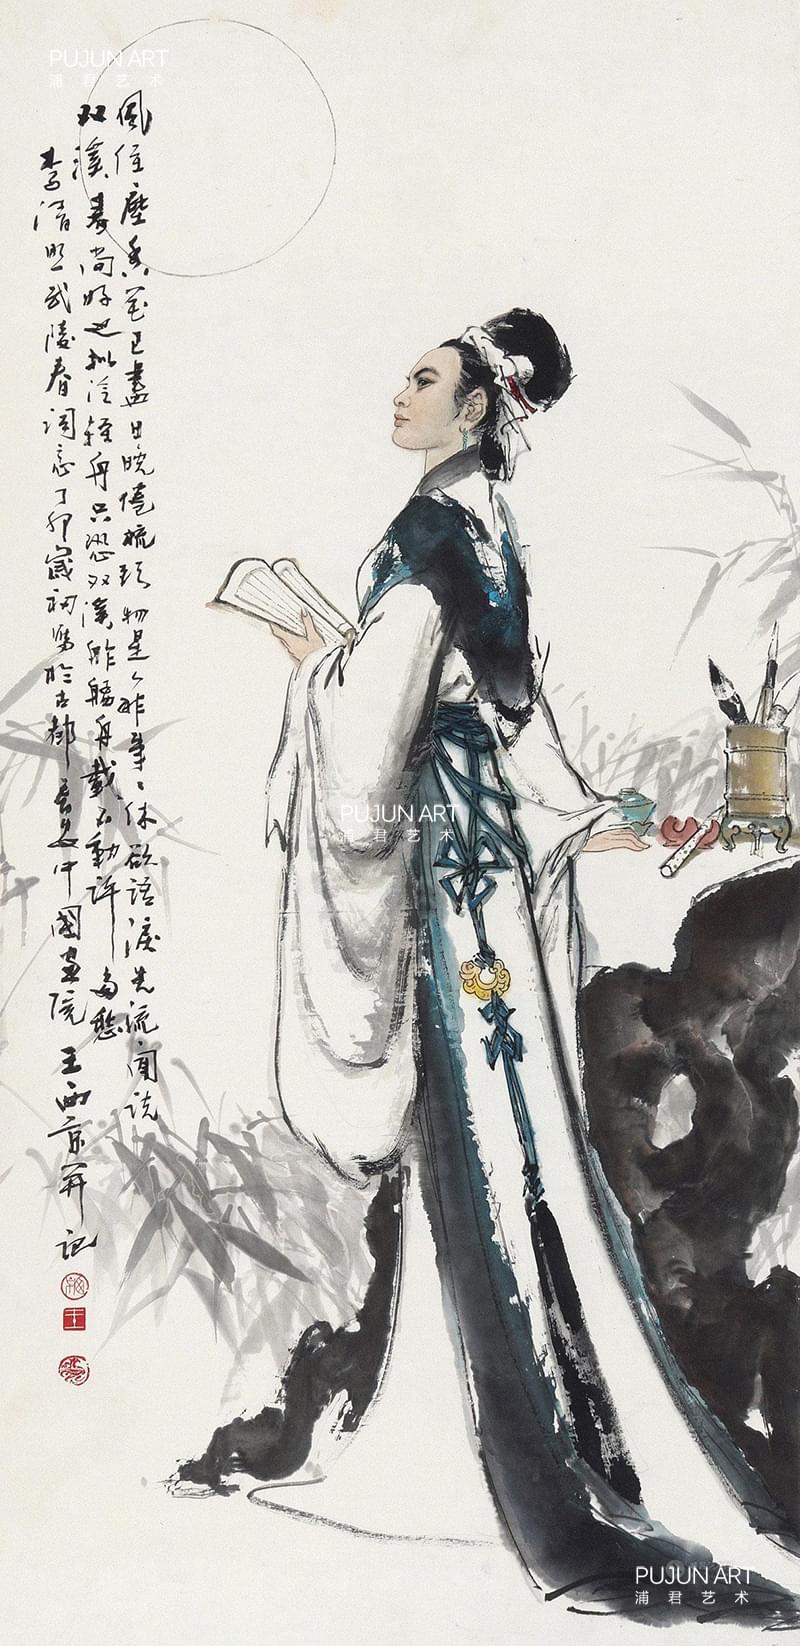 PUJUN ART
浦君艺术
風住塵香花已盡日晚倦梳頭物是人非事〻休欲語淚先流聞説
双溪春尚好也擬泛輕舟只恐双溪舴艋舟載不動許多愁
李清照武陵春詞意丁卯歲初寫於古都長安中國畫院王西京并記
王
PUJUN ART
浦君艺术
PUJUN ART
浦君艺术
PUJUN ART
浦君艺术